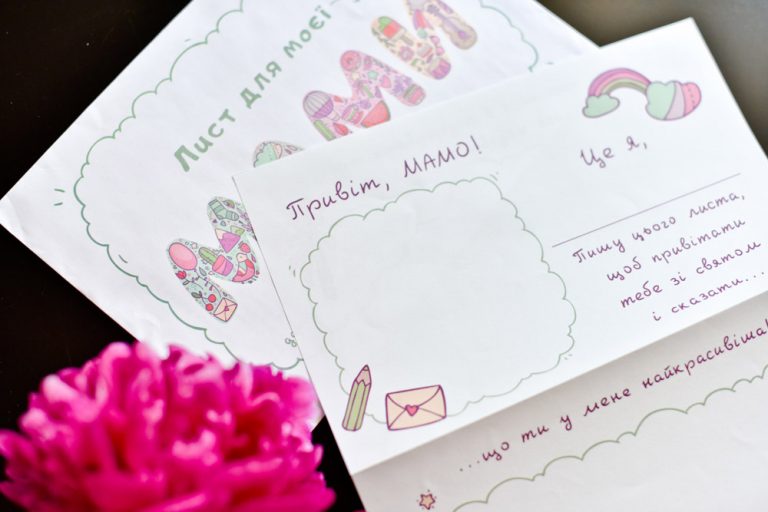 Лист для моєї
МАМИ
Привіт, МАМО!
Це я,
Пишу цього листа,
щоб привітати
тебе зі святом
і сказати...
...що ти у мене найкрасивіша!